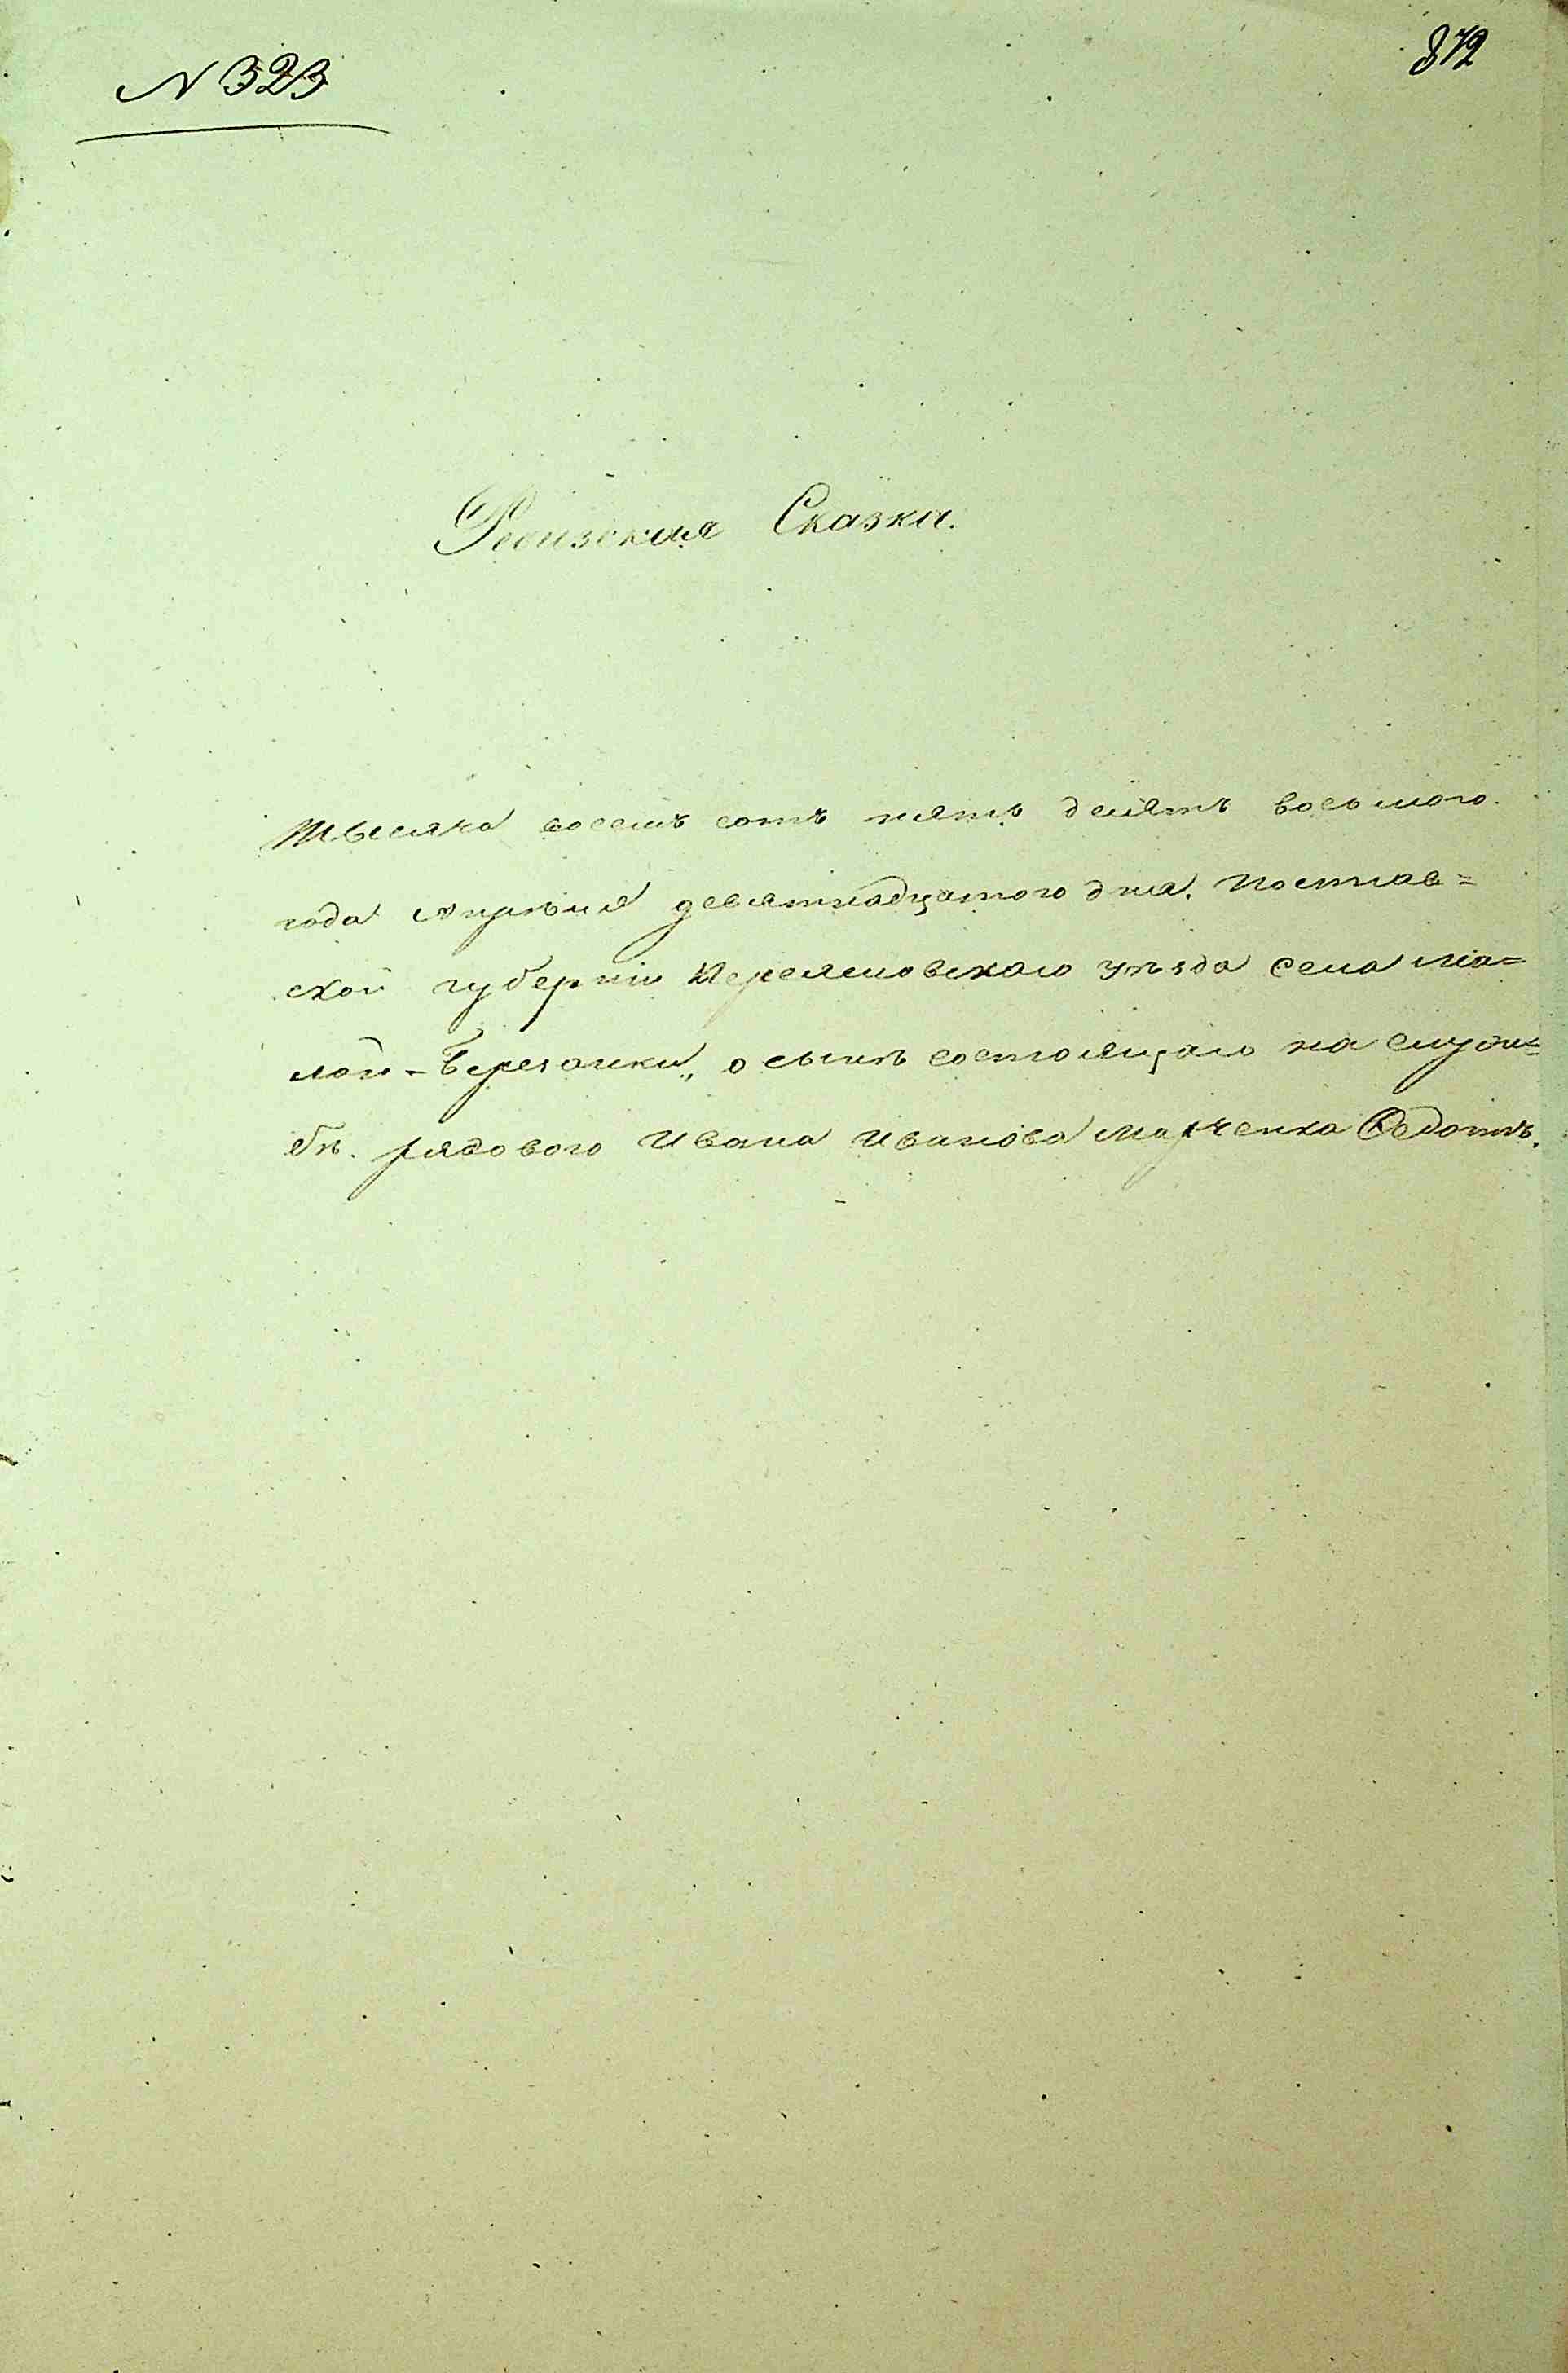 N 323
872
Ревизская Сказка.
Тысяча восемъ сотъ пять десятъ восьмого
года Апрѣля девятнадцатого дня. Полтав=
ской губернiи Переяславскаго уѣзда села Ма=
лой-Березанки, о сынѣ состоящаго на служ=
бѣ. рядового Ивана Иванова Марченка Федотѣ.